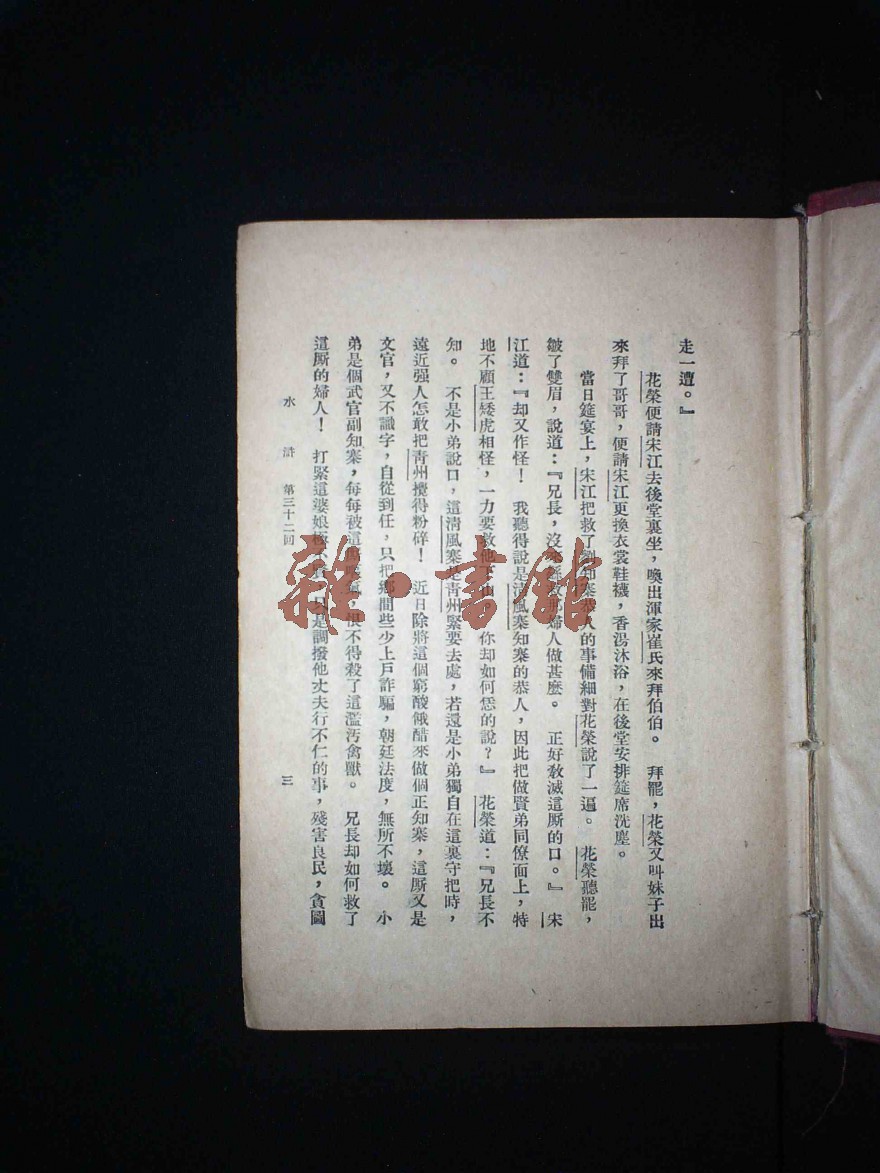 走一遭。』
花榮便請宋江去後堂裏坐，喚出渾家崔氏來拜伯伯。　拜罷，花榮又叫妹子出
來拜了哥哥，便請宋江更換衣裳鞋襪，香湯沐浴，在後堂安排筵席洗塵。
當日筵宴上，宋江把救了劉知寨恭人的事備細對花榮說了一遍。　花榮聽罷，
皺了雙眉，說道：『兄長，沒來婦人做甚麼。　正好敎滅這厮的口。』　宋
江道：『却又作怪！　我聽得說是清風寨知寨的恭人，因此把做賢弟同僚面上，特
地不顧王矮虎相怪，一力要救他下山。你却如何恁的說？』　花榮道：『兄長不
知。　不是小弟說口，這清風寨是靑州緊要去處，若還是小弟獨自在這裏守把時，
遠近强人怎敢把靑州攪得粉碎！　近日除將這個窮酸餓醋來做個正知寨，這厮又是
文官，又不識字，自從到任，只把鄉間些少上戶詐騙，朝廷法度，無所不壞。　小
弟是個武官副知寨，每每被這氣，恨不得殺了這濫汚禽獸。　兄長却如何救了
這厮的婦人！　打緊這婆娘極不是調撥他丈夫行不仁的事，殘害良民，貪圖
水　滸　第三十二回　三
雜·書館